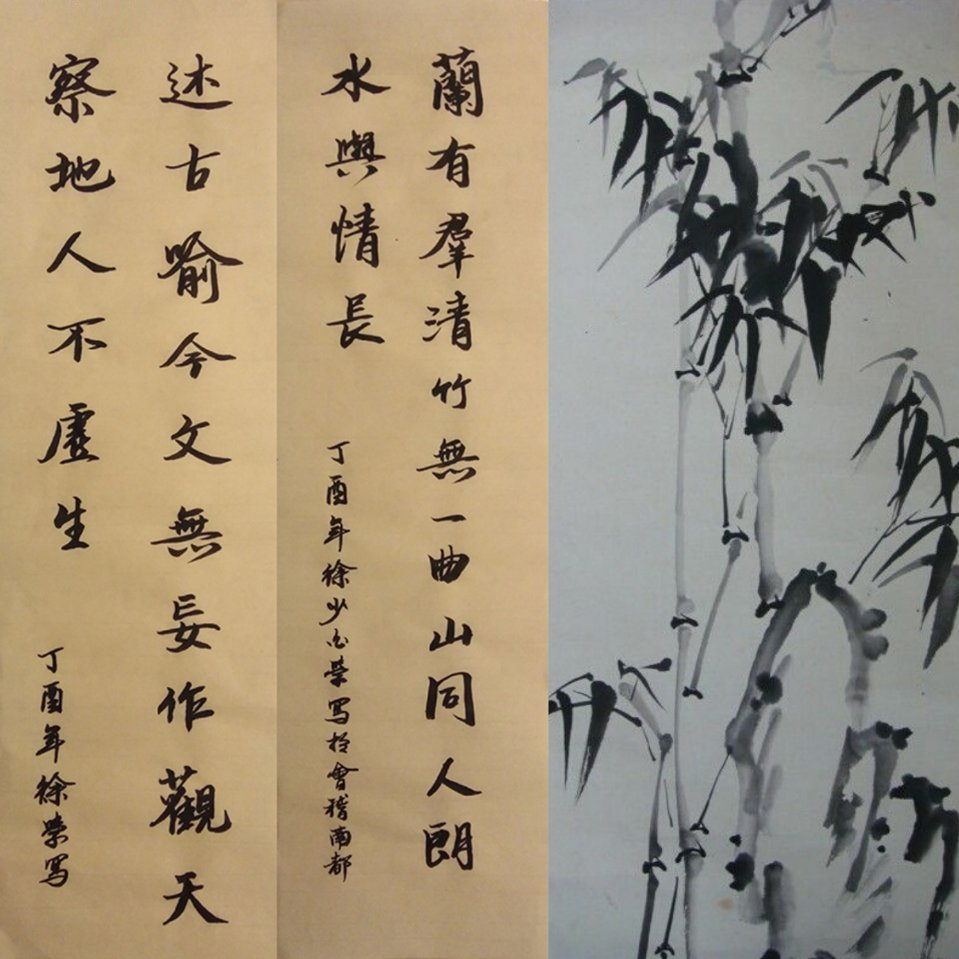 蘭有羣清竹無一曲山同人朗
水與情長
丁酉年徐少白榮写於會稽南都
述古喻今文無妄作觀天
察地人不虛生
丁酉年徐榮写